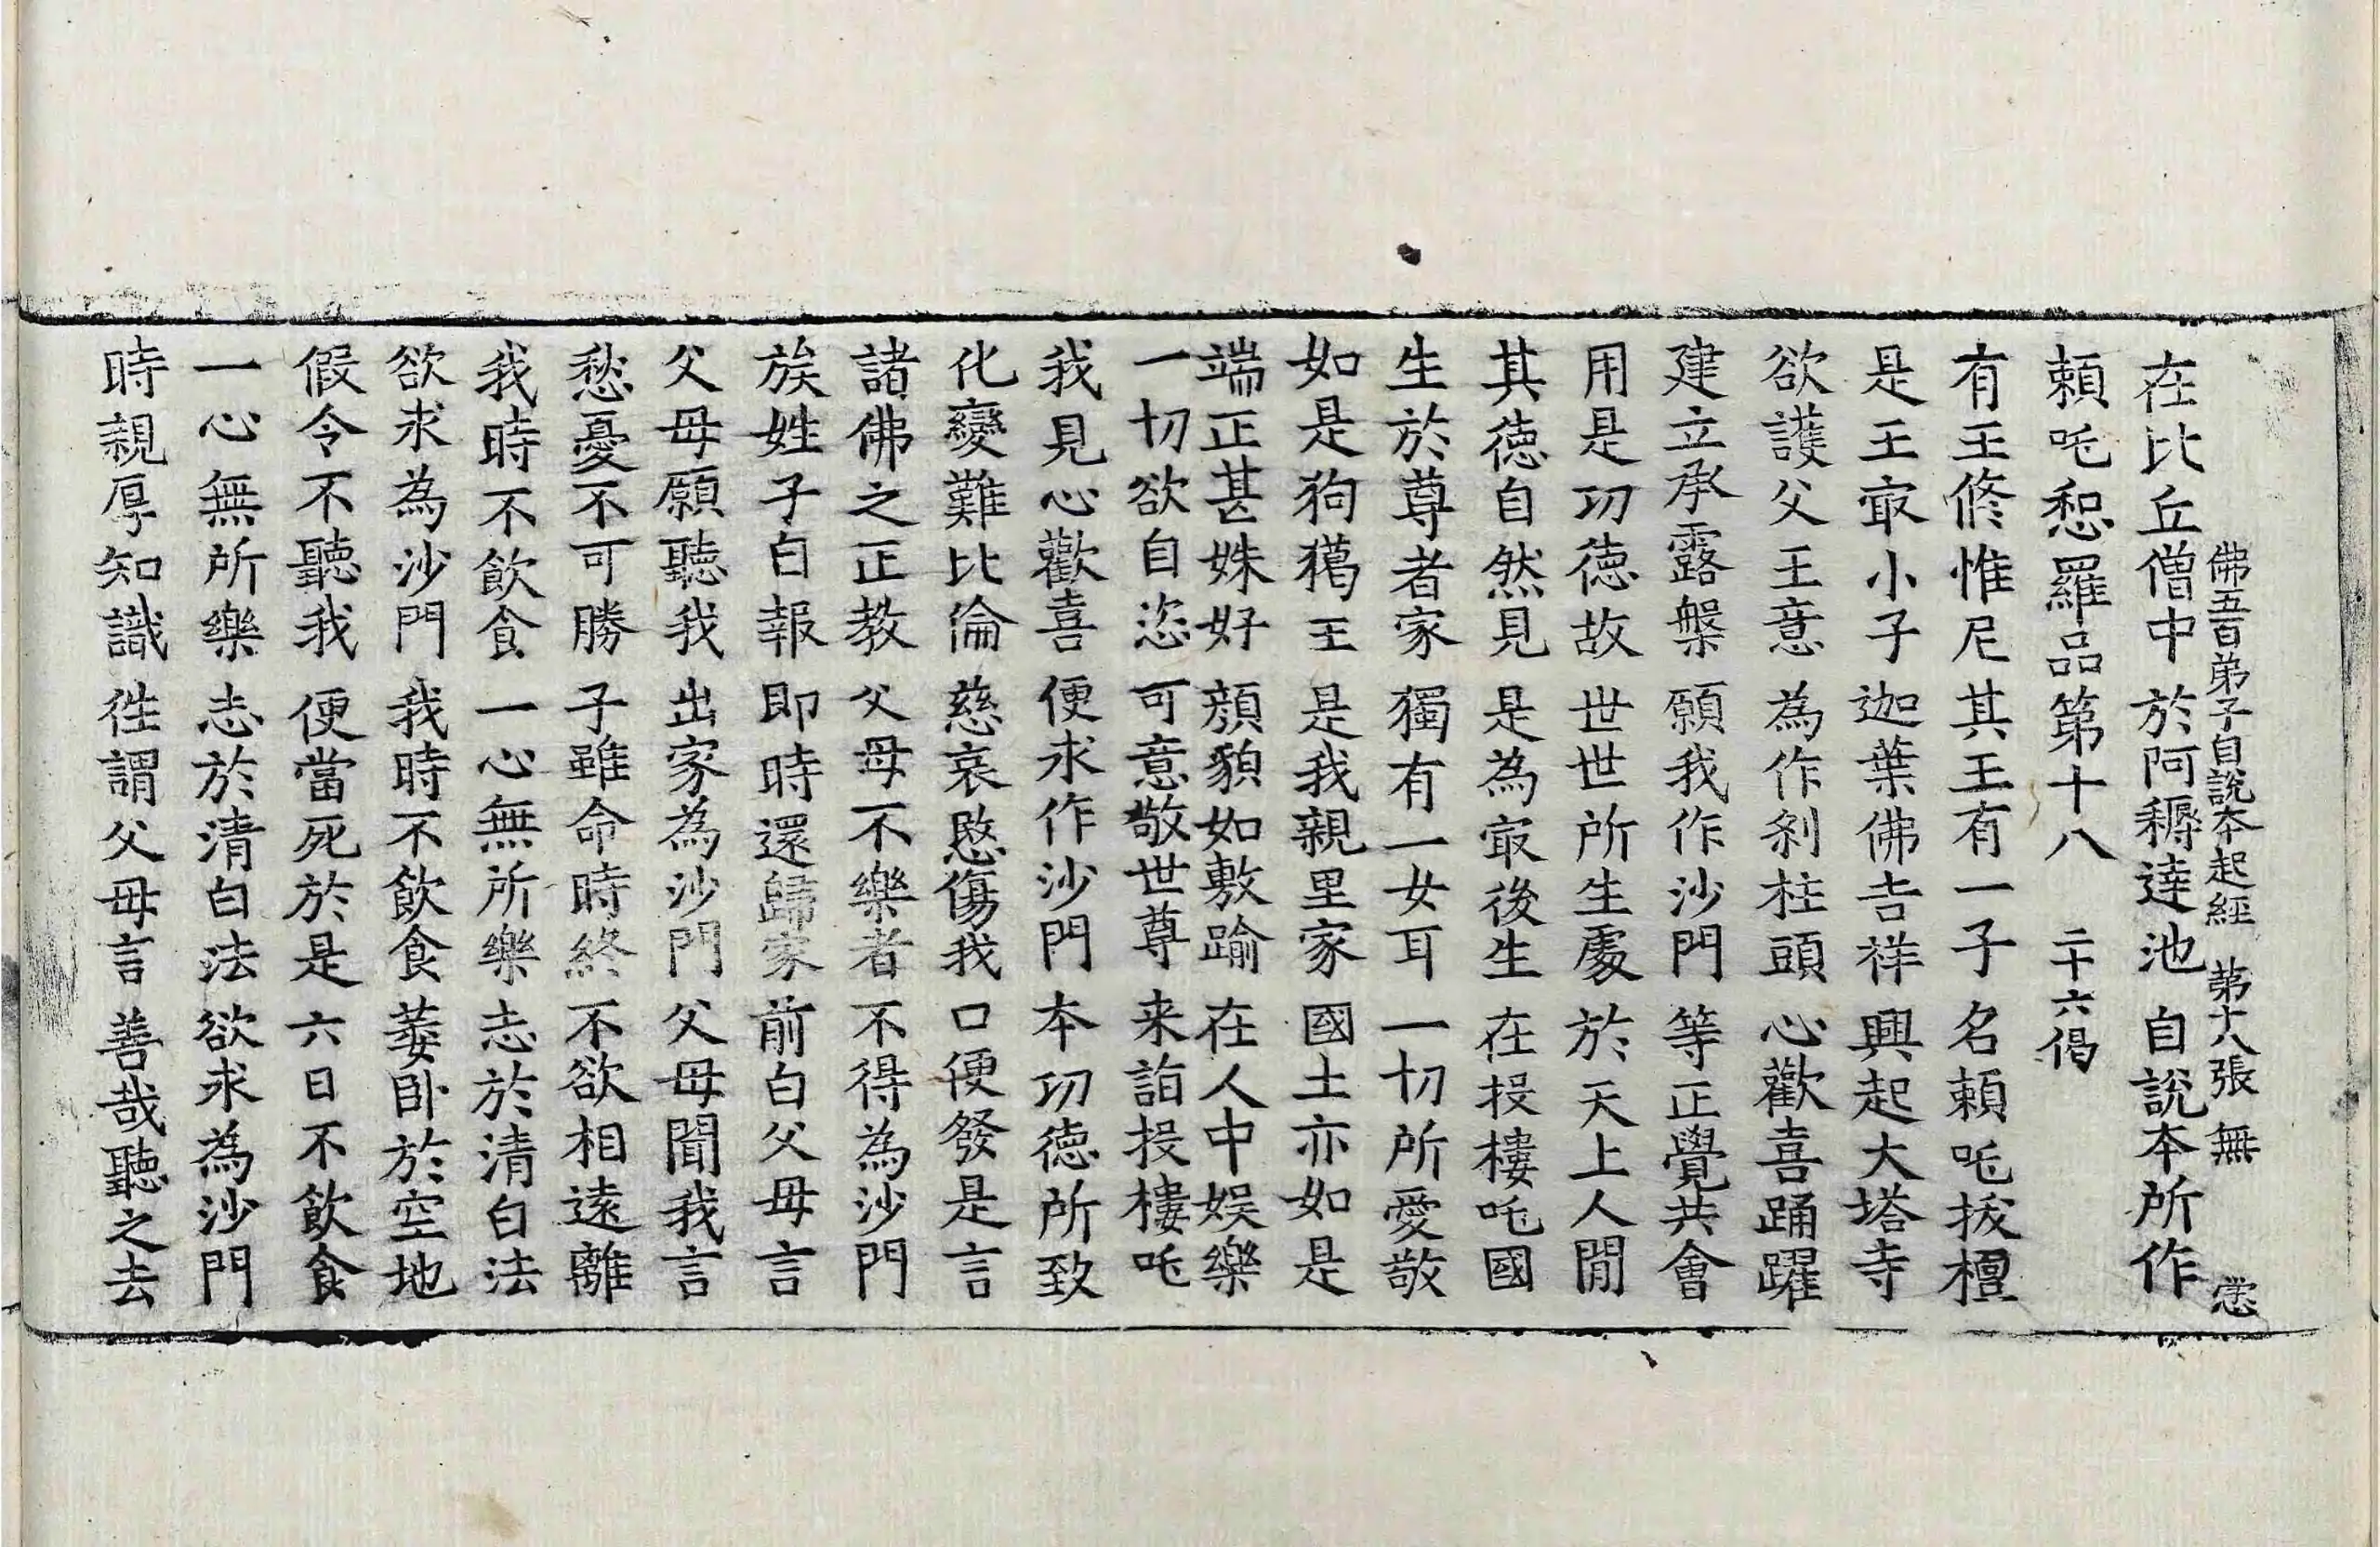 佛五百弟子自說本起經 第十八張 無
在比丘僧中 於阿耨達池 自說本所作
賴吒惒羅品第十八 二十六偈
有王修惟尼 其王有一子 名賴吒拔檀
是王㝡小子 迦葉佛吉祥 興起大塔寺
欲護父王意 為作刹柱頭 心歡喜踊躍
建立承露槃 願我作沙門 等正覺共會
用是功德故 世世所生處 於天上人閒
其德自然見 是為㝡後生 在投樓吒國
生於尊者家 獨有一女耳 一切所愛敬
如是狗獦王 是我親里家 國土亦如是
端正甚姝好 顏貌如敷踰 在人中娛樂
一切欲自恣 可意敬世尊 来詣投樓吒
我見心歡喜 便求作沙門 本功德所致
化變難比倫 慈哀愍傷我 口便發是言
諸佛之正教 父母不樂者 不得為沙門
族姓子白報 即時還歸家 前白父母言
父母願聽我 出家為沙門 父母聞我言
愁憂不可勝 子雖命時終 不欲相遠離
我時不飲食 一心無所樂 志於清白法
欲求為沙門 我時不飲食 萎卧於空地
假令不聽我 便當死於是 六日不飲食
一心無所樂 志於清白法 欲求為沙門
時親厚知識 徃謂父母言 善哉聽之去